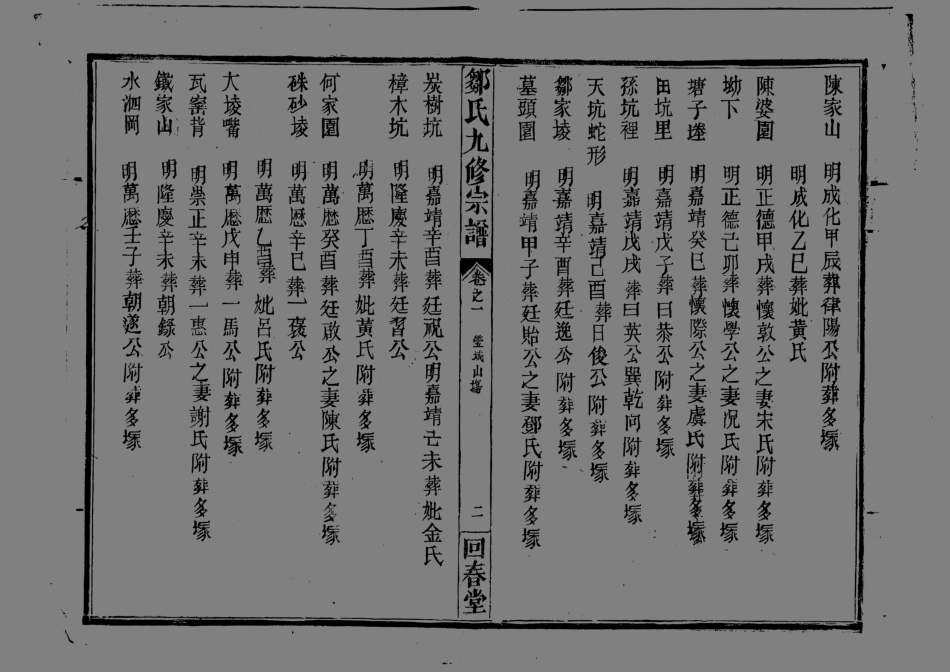 陳家山　明成化甲辰葬律陽公附葬多塚
明成化乙巳葬妣黃氏
陳婆園　明正德甲戌葬懷敦公之妻宋氏附葬多塚
坳下　明正德己卯葬懷學公之妻况氏附葬多塚
塘子塂　明嘉靖癸巳葬懷際公之妻虞氏附葬多塚
田坑里　明嘉靖戊子葬曰恭公附葬多塚
孫坑裡　明嘉靖戊戌葬曰英公巽乾向附葬多塚
天坑蛇形　明嘉靖己酉葬日俊公附葬多塚
鄒家堎　明嘉靖辛酉葬廷逸公附葬多塚
墓頭園　明嘉靖甲子葬廷貽公之妻鄧氏附葬多塚
鄒氏九修宗譜　卷之一　塋域山塲　二　回春堂
炭樹坑　明嘉靖辛酉葬廷祝公明嘉靖己未葬妣金氏
樟木坑　明隆慶辛未葬廷習公
明萬厯丁酉葬妣黃氏附葬多塚
何家園　明萬厯癸酉葬廷啟公之妻陳氏附葬多塚
硃砂堎　明萬厯辛巳葬一褒公
明萬厯乙酉葬妣呂氏附葬多塚
大堎嘴　明萬厯戊申葬一馬公附葬多塚
瓦窰背　明崇正辛未葬一惠公之妻謝氏附葬多塚
鐵家山　明隆慶辛未葬朝錄公
水泗岡　明萬厯壬子葬朝遂公附葬多塚